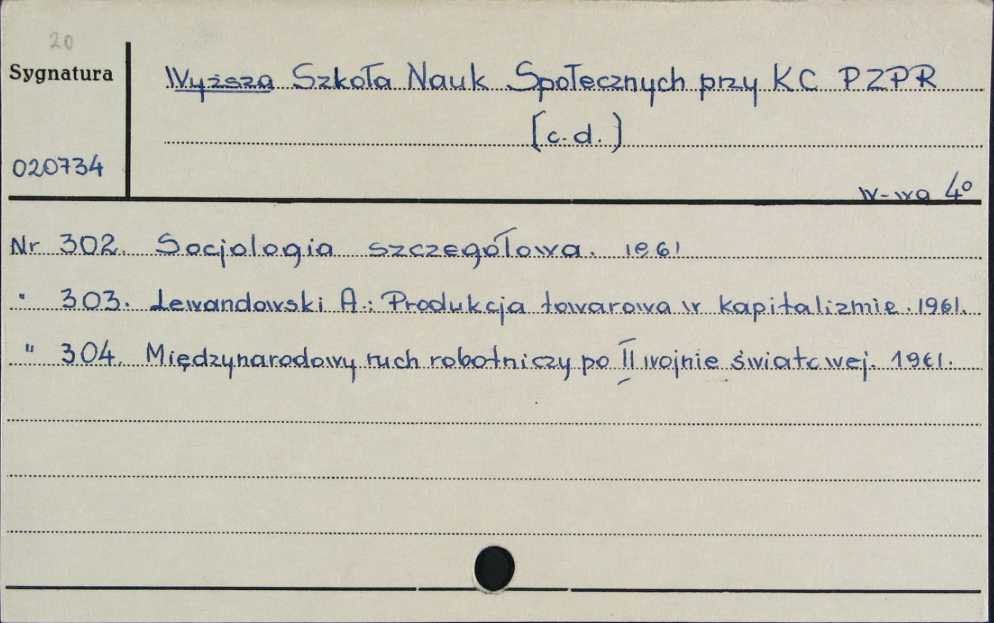 20
Sygnatura
Wyższa Szkoła Nauk Społecznych przy KC PZPR
[c.d.]
020734
W-wa 4°
Nr 302. Socjologia szczegółowa. 1961
" 303. Lewandowski A.: Produkcja towarowa w kapitalizmie. 1961.
" 304. Międzynarodowy ruch robotniczy po II wojnie światowej. 1961.